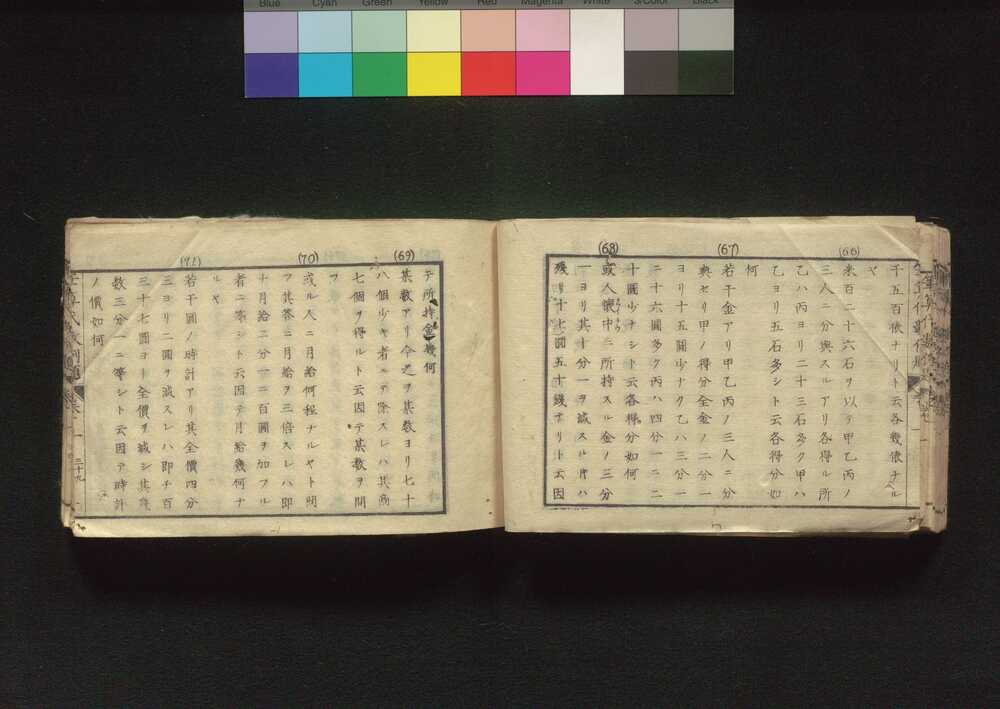 Blue Cyan Green Yellow Red Magenta White 3/Color Black
千五百俵ナリト云各幾俵ナル
ヤ
(66)
米百二十六石ヲ以テ甲乙丙ノ
三人ニ分與スルアリ各得ル所
乙ハ丙ヨリ二十三石多ク甲ハ
乙ヨリ五石多シト云各得分如
何
(67)
若干金アリ甲乙丙ノ三人ニ分
與セリ甲ノ得分全金ノ二分一
ヨリ十五圓少ナク乙ハ三分一
ニ十六圓多ク丙ハ四分一ニ二
十圓少ナシト云各得分如何
(68)
或人懷中ニ所持スル金ノ三分
一ヨリ其十分一ヲ減スル時ハ
殘リ十七圓五十錢ナリト云因
テ所持金幾何
(69)
某數アリ今之ヲ某數ヨリ七十
八個少キ者ニテ除スレハ其商
七個ヲ得ルト云因テ某數ヲ問
フ
(70)
或ル人ニ月給何程ナルヤト問
フ其答ニ月給ヲ三倍スレハ即
ナ月給二分一ニ百圓ヲ加フル
者ニ等シト云因テ月給幾何ナ
ルヤ
(71)
若干圓ノ時計アリ其全價四分
三ヨリ二圓ヲ減スレハ即チ百
三十七圓ヨト全價ヲ減シ其殘
數三分一ニ等シト云因テ時計
ノ價如何
二十九